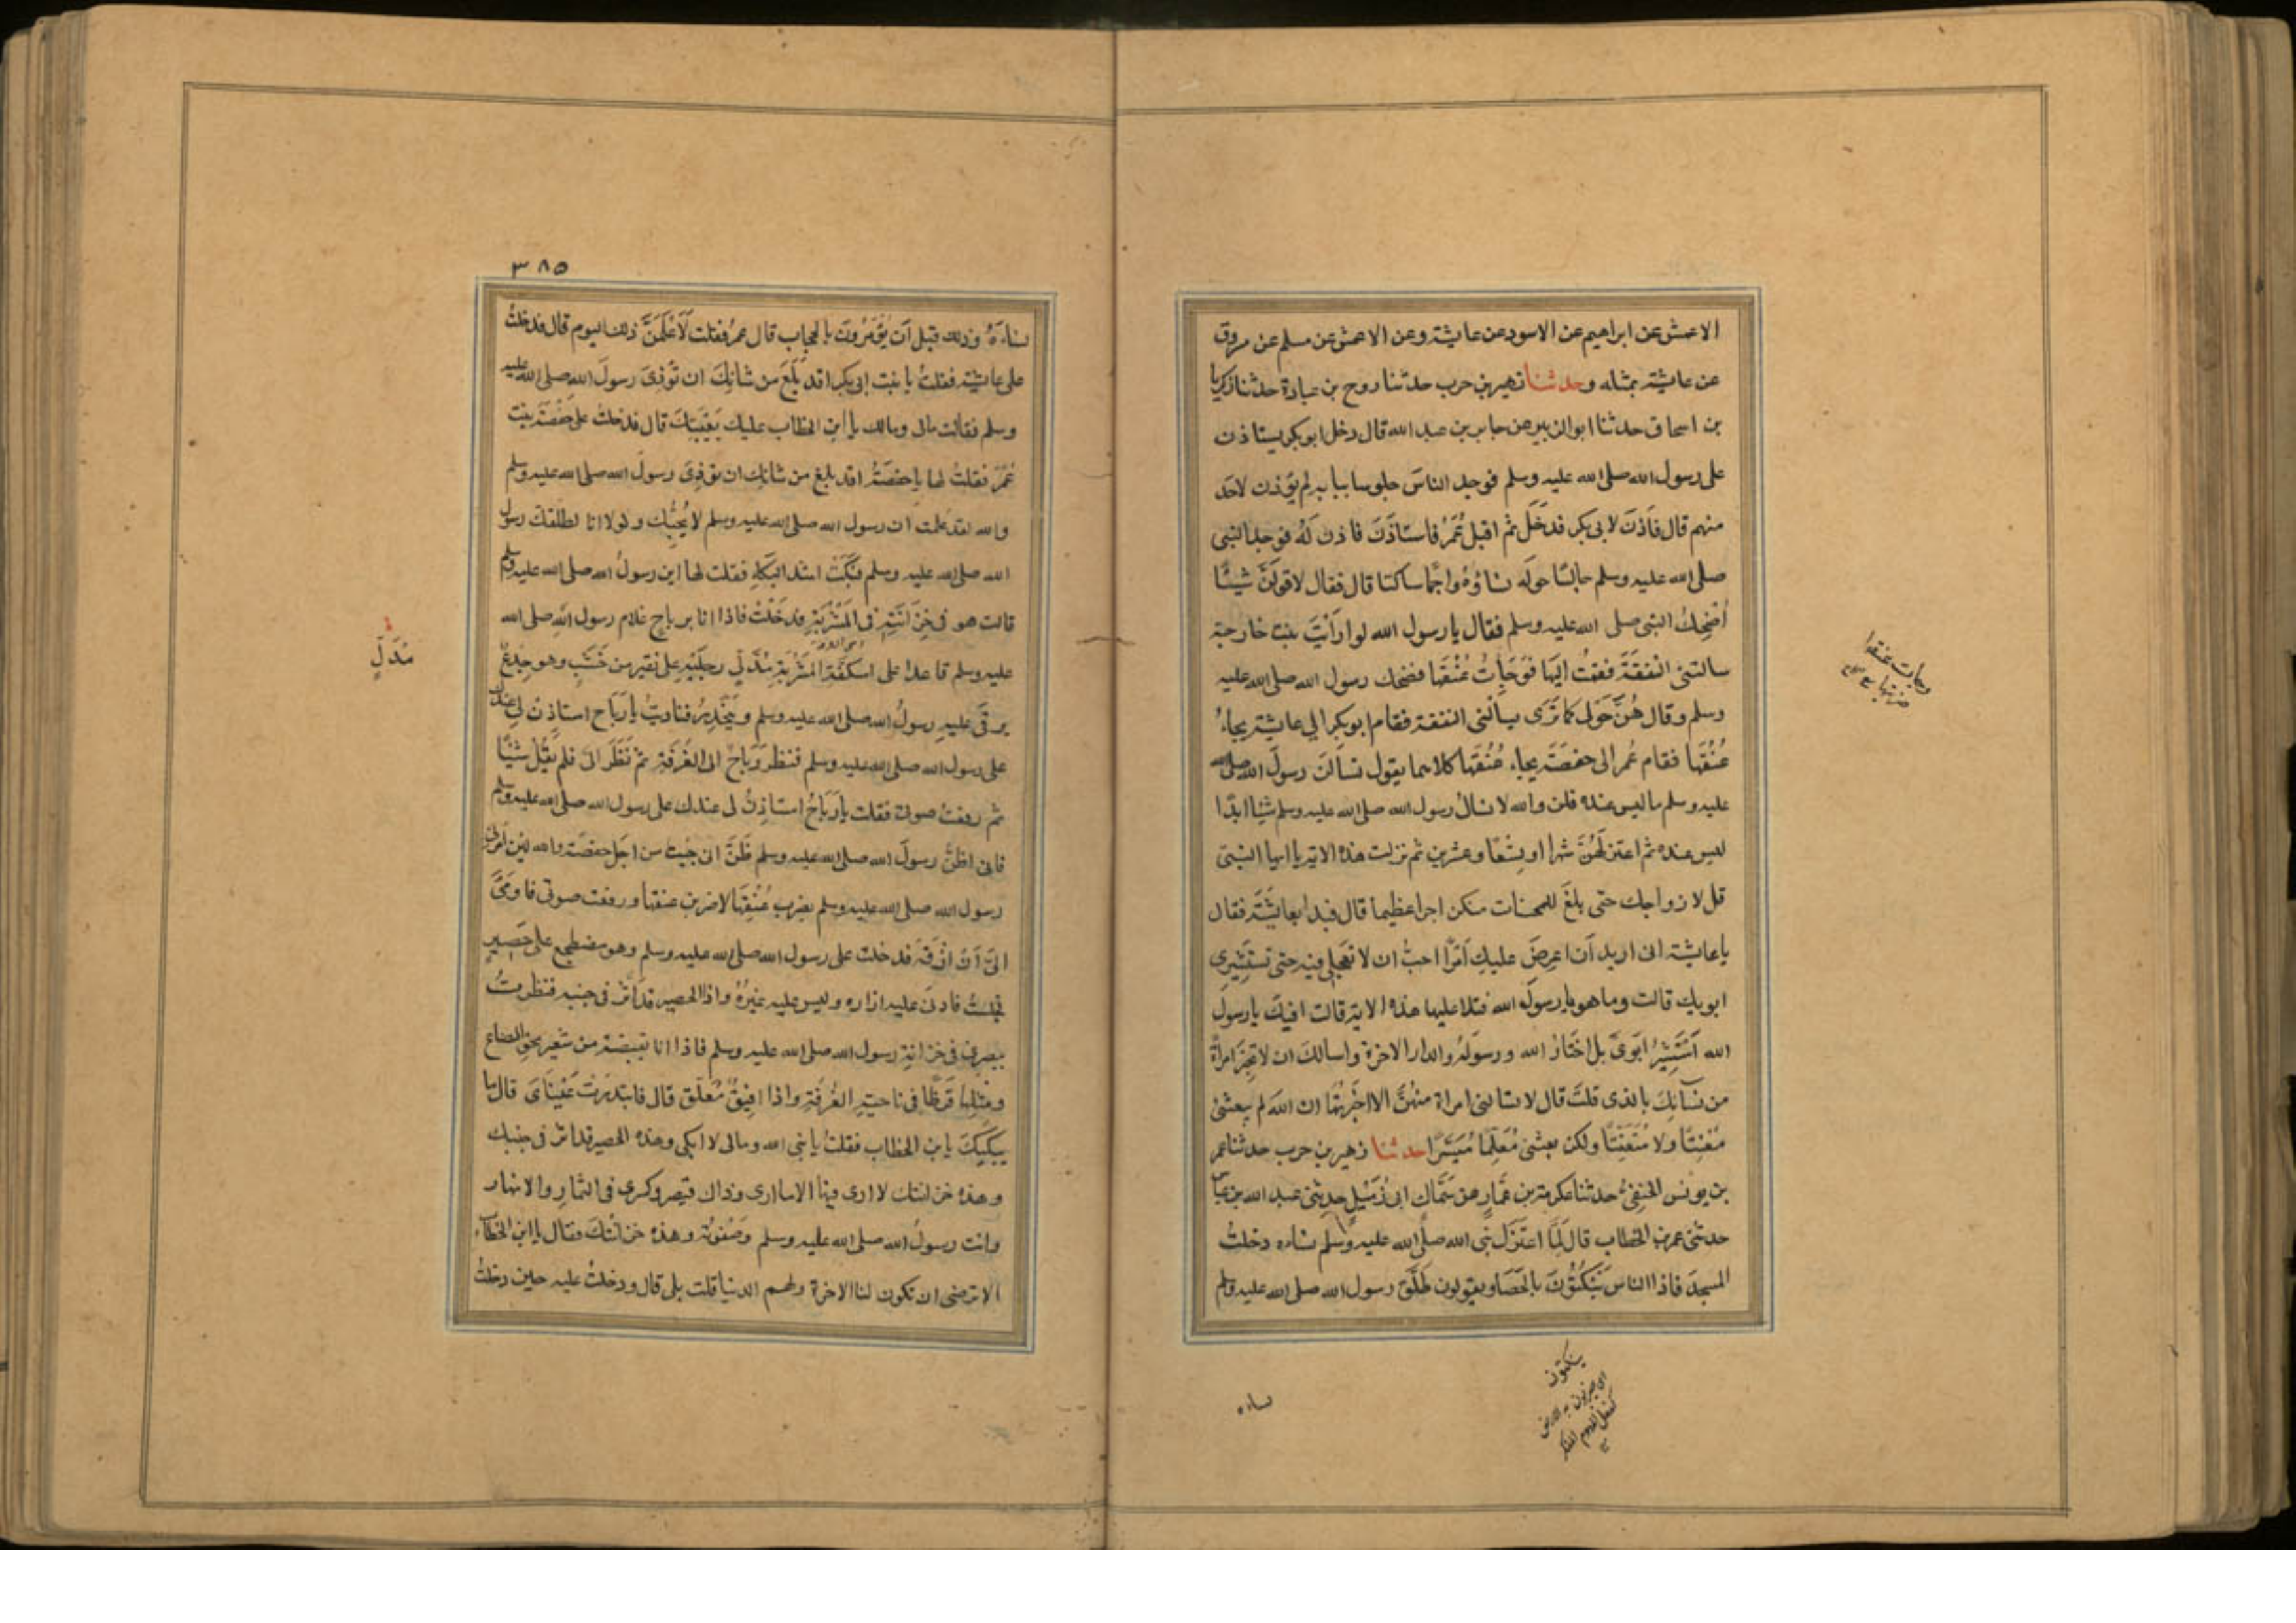 الاعمش عن ابراهيم عن الاسود عن عايشة وعن الاعمش عن مسلم عن مسروق
عن عايشة بمثله وحدثنا زهير بن حرب حدثنا روح بن عبادة حدثنا زكريا
بن اسحاق حدثنا ابو الزبير عن جابر بن عبد الله قال دخل ابو بكر يستاذن
على رسول الله صلى الله عليه وسلم فوجد الناس جلوسا ببابه لم يؤذن لاحد
منهم قال فاَذن لابى بكر فدخل ثم اقبل عمر فاستاذن فاذن له فوجد النبى
صلى الله عليه وسلم جالسًا حوله نساؤه واجمًا ساكتا قال فقال لاقولن شيئًا
اُضحِكُ النبى صلى الله عليه وسلم فقال يا رسول الله لو رايت بنت خارجة
سالتنى النفقة فقمت اليها فوجأت عنقها فضحك رسول الله صلى الله عليه
وسلم وقال هن حولى كما ترى يسألننى النفقة فقام ابو بكر الى عايشة يجاءُ
عنقها فقام عمر الى حفصة يجاء عنقها كلاهما يقول تسالن رسول الله صلى الله
عليه وسلم ما ليس عنده قلن والله لا نسال رسول الله صلى الله عليه وسلم شيئا ابدًا
ليس عنده ثم اعتزلهن شهرا او تسعًا وعشرين ثم نزلت هذه الاية يا ايها النبى
قل لازواجك حتى بلغ للمحسنات منكن اجرا عظيما قال فبدا بعايشة فقال
يا عايشة انى اريد أن اعرض عليك أمرًا احب ان لا تعجلى فيه حتى تستشيرى
ابويك قالت وما هو يا رسول الله فتلا عليها هذه الاية قالت افيك يا رسول
الله أستشير ابوى بل اختار الله ورسوله والدار الاخرة واسالك ان لا تخبر امراة
من نسائك بالذى قلت قال لا تسالنى امراة منهن الا اخبرتها ان الله لم يبعثنى
معنتًا ولا متعنتًا ولكن بعثنى معلمًا ميسرًا حدثنا زهير بن حرب حدثنا عمر
بن يونس الحنفى حدثنا عكرمة بن عمار عن سماك ابى زميل حدثنى عبد الله بن عباس
حدثنى عمر بن الخطاب قال لما اعتزل نبى الله صلى الله عليه وسلم نساءه دخلت
المسجد فاذا الناس ينكتون بالحصا ويقولون طلق رسول الله صلى الله عليه وسلم
ينكتون
نساءه
٣٨٥
نساءه وذلك قبل أن يؤمرون بالحجاب قال عمر فقلت لأعلمن ذلك اليوم قال فدخلت
على عايشة فقلت يا بنت ابى بكر اقد بلغ من شانك ان توذى رسول الله صلى الله عليه
وسلم فقالت مالى ومالك يا ابن الخطاب عليك بعيبتك قال فدخلت على حفصة بنت
عمر فقلت لها يا حفصة اقد بلغ من شانك ان توذى رسول الله صلى الله عليه وسلم
والله لقد علمت ان رسول الله صلى الله عليه وسلم لا يحبك ولولا انا لطلقك رسول
الله صلى الله عليه وسلم فبكت اشد البكاء فقلت لها اين رسول الله صلى الله عليه وسلم
قالت هو فى خزانته فى المشربة فدخلت فاذا انا برباح غلام رسول الله صلى الله
عليه وسلم قاعدا على اسكفة المشربة مدلى رجليه على نقير من خشب وهو جذع
يرقى عليه رسول الله صلى الله عليه وسلم وينحدر فناديت يا رباح استاذن لى عندك
على رسول الله صلى الله عليه وسلم فنظر رباح الى الغرفة ثم نظر الى فلم يقل شيئًا
ثم رفعت صوتى فقلت يا رباح استاذن لى عندك على رسول الله صلى الله عليه وسلم
فانى اظن رسول الله صلى الله عليه وسلم ظن انى جيت من اجل حفصة والله لين امرنى
رسول الله صلى الله عليه وسلم بضرب عنقها لاضربن عنقها ورفعت صوتى فاومى
الى أن ارقه فدخلت على رسول الله صلى الله عليه وسلم وهو مضطجع على حصير
فجلست فادنى عليه ازاره وليس عليه غيره واذا الحصير قد اثر فى جنبه فنظرت
ببصرى فى خزانة رسول الله صلى الله عليه وسلم فاذا انا بقبضة من شعير نحو الصاع
ومثلها قرظا فى ناحية الغرفة واذا افيق معلق قال فابتدرت عيناى قال ما
يبكيك يا بن الخطاب فقلت يا نبى الله ومالى لا ابكى وهذه الحصير قد اثر فى جنبك
وهذه خزانتك لا ارى فيها الا ما ارى وذاك قيصر وكسرى فى الثمار والانهار
وانت رسول الله صلى الله عليه وسلم وصفوته وهذه خزانتك فقال يا ابن الخطاب
الا ترضى ان تكون لنا الاخرة ولهم الدنيا قلت بلى قال ودخلت عليه حين دخلت
مُدَلٍّ